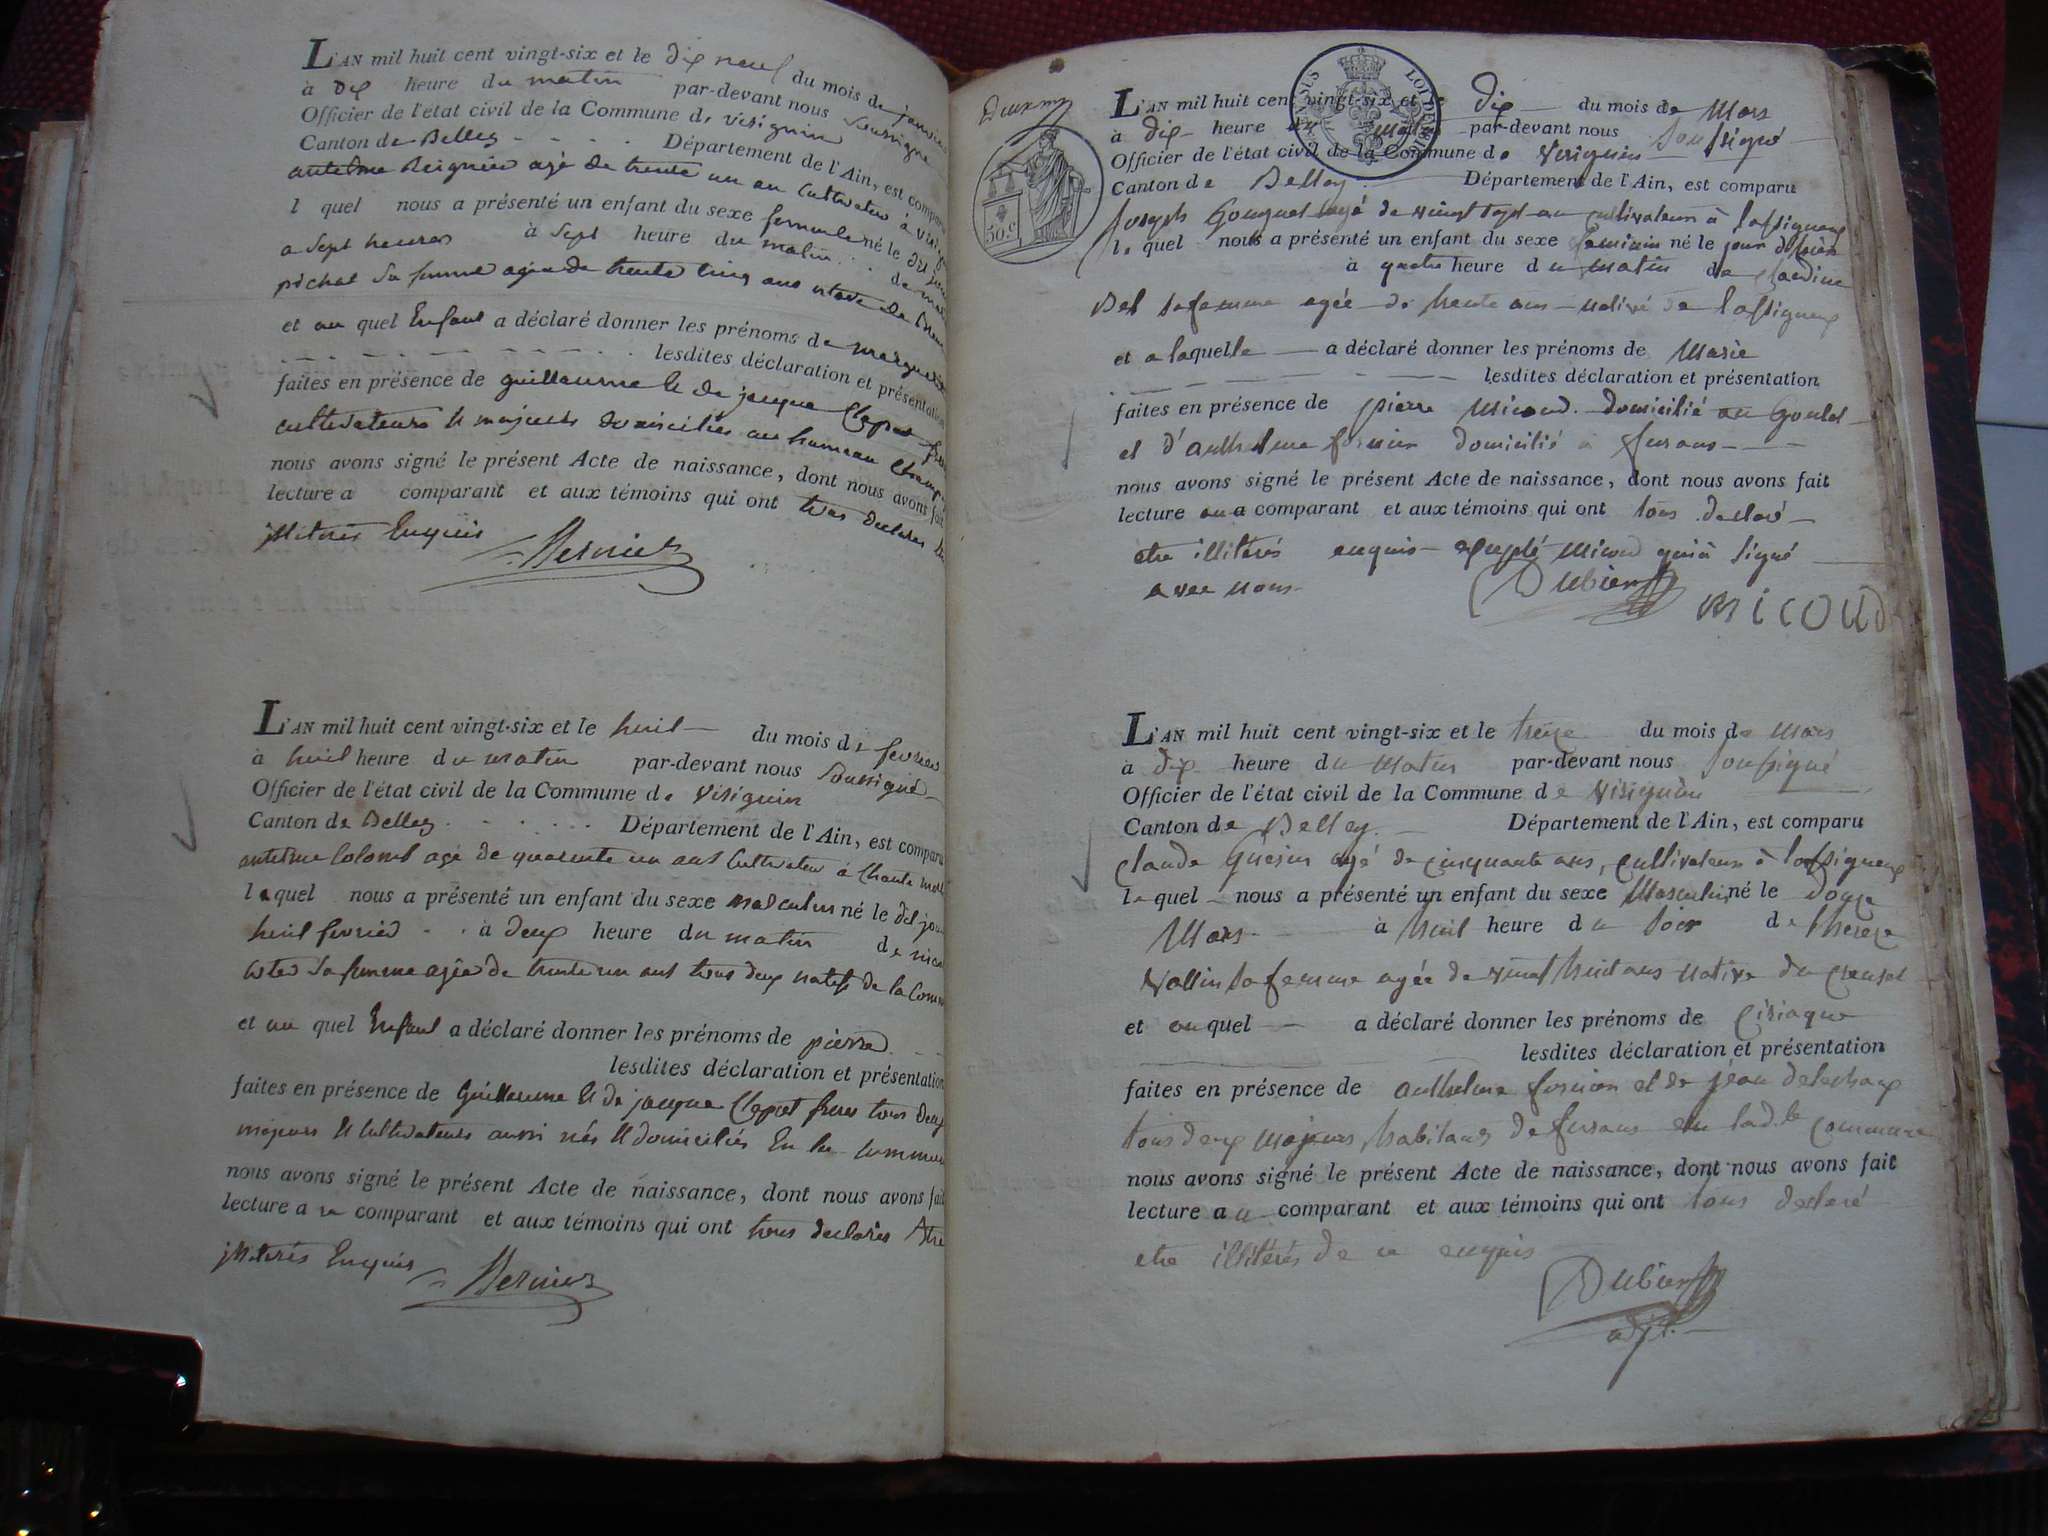 L'AN mil huit cent vingt-six et le dix neuf du mois de janvier
à dix heure du matin par-devant nous soussigné
Officier de l'état civil de la Commune de virignin
Canton de Belley Département de l'Ain, est comparu
antelme Reignier agé de trente un an Cultivateur à
l quel nous a présenté un enfant du sexe né le dit jour
a Sept heures à Sept heure du matin de
pichat Sa femme agée de trente cinq ans native de
et au quel Enfant a déclaré donner les prénoms de
lesdites déclaration et présentation
faites en présence de guillaume & de jacque Clopet
cultivateurs & majeurs domiciliés au hameau
nous avons signé le présent Acte de naissance, dont nous avons fait
lecture a comparant et aux témoins qui ont tous declarés
jlliterés Enquis
Bernier
L'AN mil huit cent vingt-six et le huit du mois de fevrier
à huit heure du matin par-devant nous Soussigné
Officier de l'état civil de la Commune de Virignin
Canton de Belley Département de l'Ain, est comparu
antelme Colomb agé de quarente un ans Cultivateur à
lequel nous a présenté un enfant du sexe masculin né le dit jour
huit fevrier à deux heure du matin de
Sa femme agée de trente un ans tous deux natifs de la
et au quel Enfant a déclaré donner les prénoms de pierre
lesdites déclaration et présentation
faites en présence de Guillaume & de jacque Clopet freres tous deux
majeurs & Cultivateurs aussi nés & domiciliés En la commune
nous avons signé le présent Acte de naissance, dont nous avons fait
lecture a u comparant et aux témoins qui ont tous declarés Etre
jlliterés Enquis Bernier
L'AN mil huit cent vingt-six et le dix du mois de Mars
à dix heure du matin par-devant nous soussigné
Officier de l'état civil de la Commune de Virignin
Canton de Belley Département de l'Ain, est comparu
joseph Gouguet agé de vingt sept an cultivateur à lassigneux
le quel nous a présenté un enfant du sexe feminin né le jour
à quatre heure du matin de Claudine
Bel sa femme agée de trente ans native de lassigneux
et a laquelle a déclaré donner les prénoms de Marie
lesdites déclaration et présentation
faites en présence de pierre Micoud domicilié au Goulet
et d'anthelme fornier domicilié à fursans
nous avons signé le présent Acte de naissance, dont nous avons fait
lecture au comparant et aux témoins qui ont tous declaré
etre illiterés enquis excepté Micoud qui à signé
avec nous
Dubier
MICOUD
50.c
L'AN mil huit cent vingt-six et le treize du mois de Mars
à dix heure du Matin par-devant nous soussigné
Officier de l'état civil de la Commune de Virignin
Canton de Belley Département de l'Ain, est comparu
Claude Guérin agé de cinquante ans, cultivateur à lassigneux
le quel nous a présenté un enfant du sexe Masculin né le Douze
Mars à huit heure du soir de therese
Vallin sa femme agée de vingt huit ans native du creuset
et auquel a déclaré donner les prénoms de Ciriaque
lesdites déclaration et présentation
faites en présence de anthelme fornier et de jean
tous deux Majeurs habitans de fursans en lad.te commune
nous avons signé le présent Acte de naissance, dont nous avons fait
lecture au comparant et aux témoins qui ont tous declaré
etre illitérés de ce enquis
Dubier
adjt.